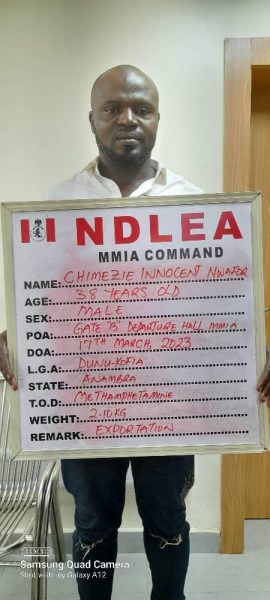 NDLEA
MMIA COMMAND
NAME: CHIMEZIE INNOCENT NWAFOR
AGE: 38 YEARS OLD
SEX: MALE
POA: GATE 'B' DEPARTURE HALL MMIA
DOA: 17TH MARCH, 2023
L.G.A: DUNU-KOFIA
STATE: ANAMBRA
T.O.D: METHAMPHETAMINE
WEIGHT: 2.10KG
REMARK: EXPORTATION
Samsung Quad Camera
Shot with my Galaxy A12